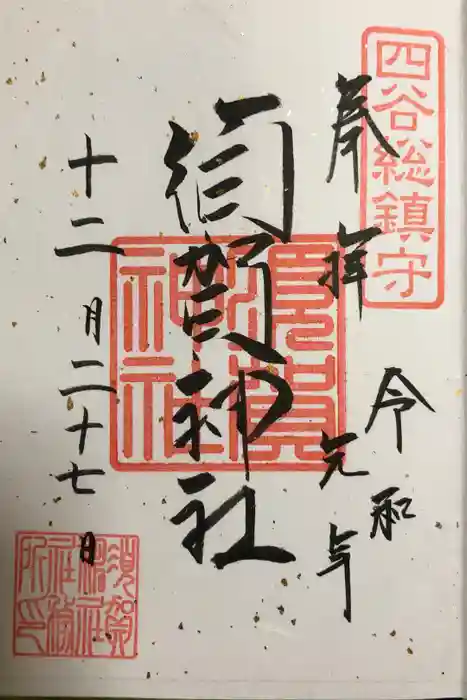 四谷総鎮守
奉拝
令和
元年
須賀神社
須賀神社
十二月二十七日
須賀神社社務所印